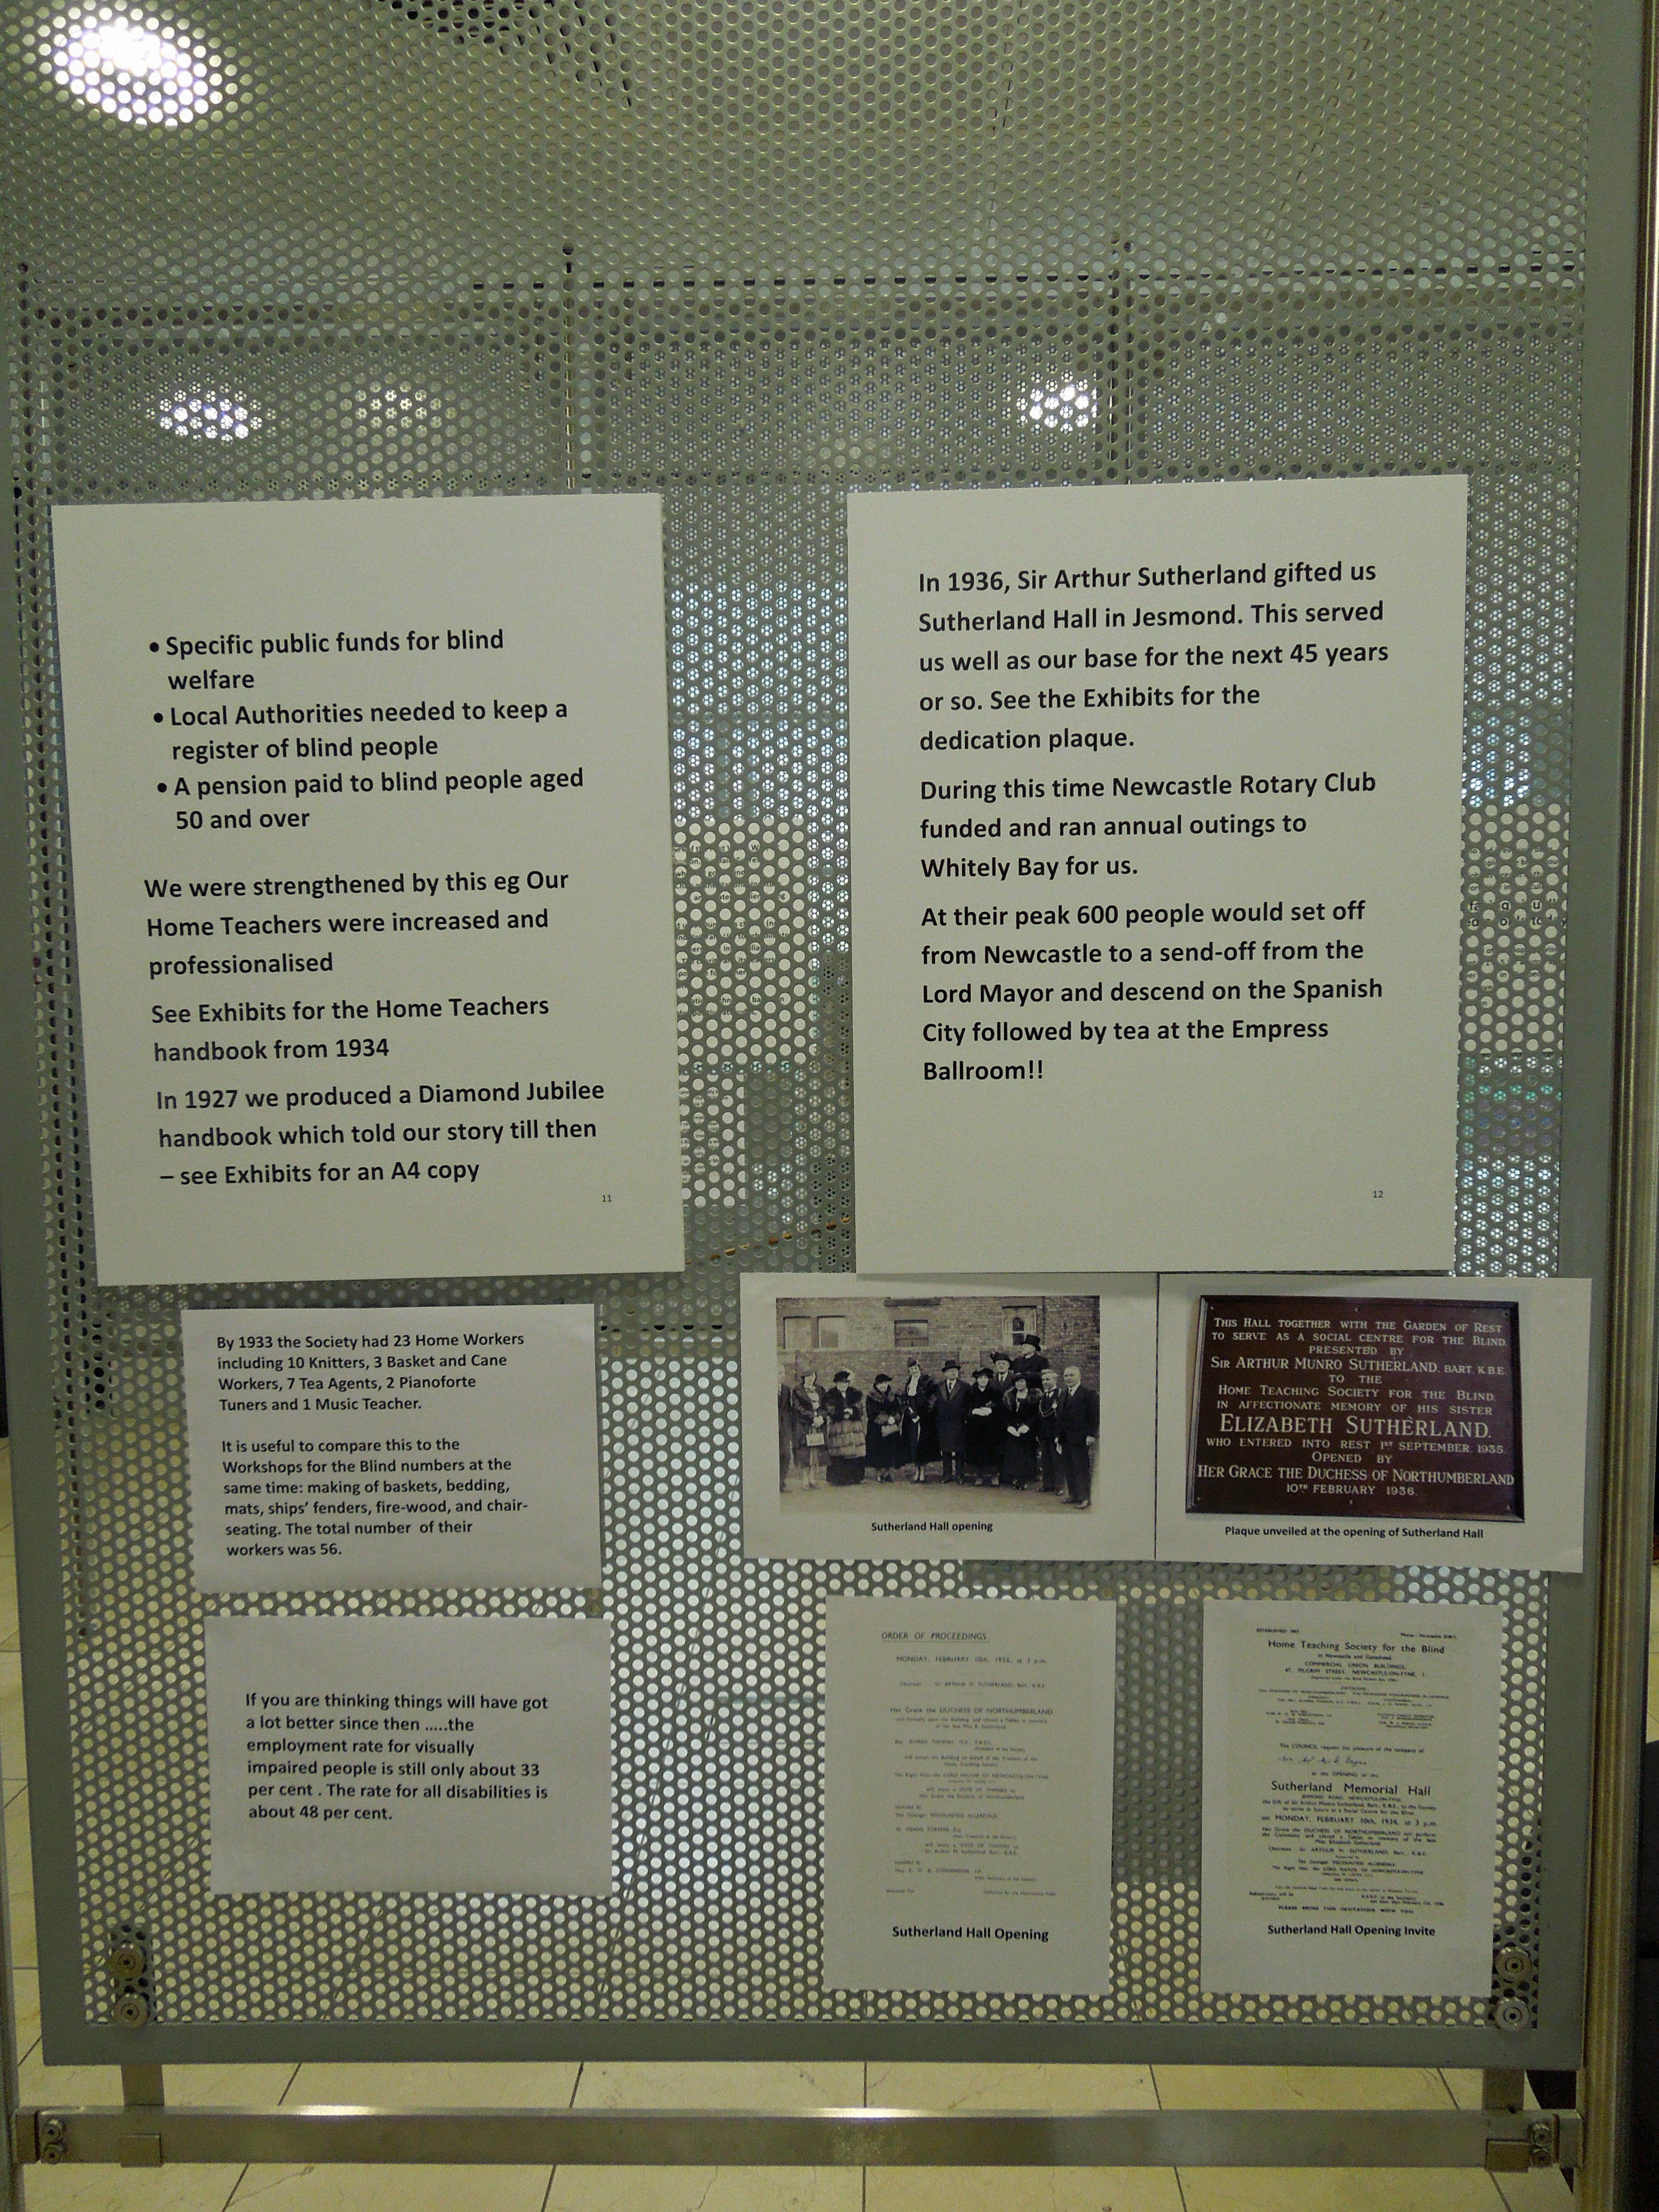 • Specific public funds for blind
welfare
• Local Authorities needed to keep a
register of blind people
• A pension paid to blind people aged
50 and over
We were strengthened by this eg Our
Home Teachers were increased and
professionalised
See Exhibits for the Home Teachers
handbook from 1934
In 1927 we produced a Diamond Jubilee
handbook which told our story till then
– see Exhibits for an A4 copy
11
In 1936, Sir Arthur Sutherland gifted us
Sutherland Hall in Jesmond. This served
us well as our base for the next 45 years
or so. See the Exhibits for the
dedication plaque.
During this time Newcastle Rotary Club
funded and ran annual outings to
Whitely Bay for us.
At their peak 600 people would set off
from Newcastle to a send-off from the
Lord Mayor and descend on the Spanish
City followed by tea at the Empress
Ballroom!!
12
By 1933 the Society had 23 Home Workers
including 10 Knitters, 3 Basket and Cane
Workers, 7 Tea Agents, 2 Pianoforte
Tuners and 1 Music Teacher.
It is useful to compare this to the
Workshops for the Blind numbers at the
same time: making of baskets, bedding,
mats, ships' fenders, fire-wood, and chair-
seating. The total number of their
workers was 56.
If you are thinking things will have got
a lot better since then .....the
employment rate for visually
impaired people is still only about 33
per cent . The rate for all disabilities is
about 48 per cent.
Sutherland Hall opening
THIS HALL TOGETHER WITH THE GARDEN OF REST
TO SERVE AS A SOCIAL CENTRE FOR THE BLIND
PRESENTED BY
SIR ARTHUR MUNRO SUTHERLAND, BART. K.B.E.
TO THE
HOME TEACHING SOCIETY FOR THE BLIND,
IN AFFECTIONATE MEMORY OF HIS SISTER
ELIZABETH SUTHERLAND.
WHO ENTERED INTO REST 1ST SEPTEMBER. 1935.
OPENED BY
HER GRACE THE DUCHESS OF NORTHUMBERLAND
10TH FEBRUARY 1936.
Plaque unveiled at the opening of Sutherland Hall
ORDER OF PROCEEDINGS
MONDAY, FEBRUARY 10th, 1936, at 3 p.m.
Her Grace the DUCHESS OF NORTHUMBERLAND
Sutherland Hall Opening
Home Teaching Society for the Blind
in Newcastle and Gateshead.
COMMERCIAL UNION BUILDINGS,
The COUNCIL request the pleasure of the company of
to the OPENING of the
Sutherland Memorial Hall
on MONDAY, FEBRUARY 10th, 1936, at 3 p.m.
PLEASE BRING THIS INVITATION WITH YOU.
Sutherland Hall Opening Invite